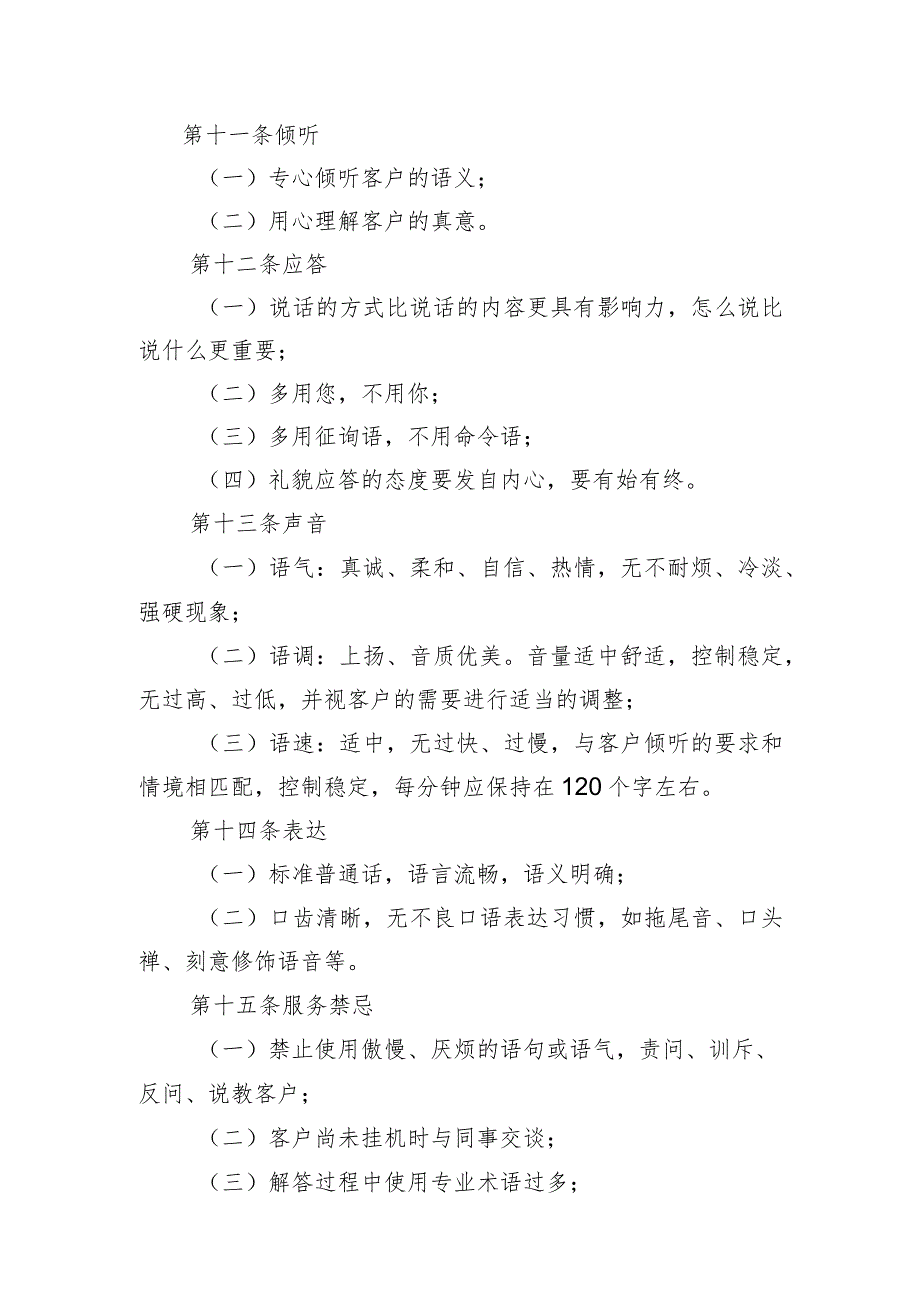 第十一条倾听
（一）专心倾听客户的语义；
（二）用心理解客户的真意。
第十二条应答
（一）说话的方式比说话的内容更具有影响力，怎么说比
说什么更重要；
（二）多用您，不用你；
（三）多用征询语，不用命令语；
（四）礼貌应答的态度要发自内心，要有始有终。
第十三条声音
（一）语气：真诚、柔和、自信、热情，无不耐烦、冷淡、
强硬现象；
（二）语调：上扬、音质优美。音量适中舒适，控制稳定，
无过高、过低，并视客户的需要进行适当的调整；
（三）语速：适中，无过快、过慢，与客户倾听的要求和
情境相匹配，控制稳定，每分钟应保持在 120 个字左右。
第十四条表达
（一）标准普通话，语言流畅，语义明确；
（二）口齿清晰，无不良口语表达习惯，如拖尾音、口头
禅、刻意修饰语音等。
第十五条服务禁忌
（一）禁止使用傲慢、厌烦的语句或语气，责问、训斥、
反问、说教客户；
（二）客户尚未挂机时与同事交谈；
（三）解答过程中使用专业术语过多；